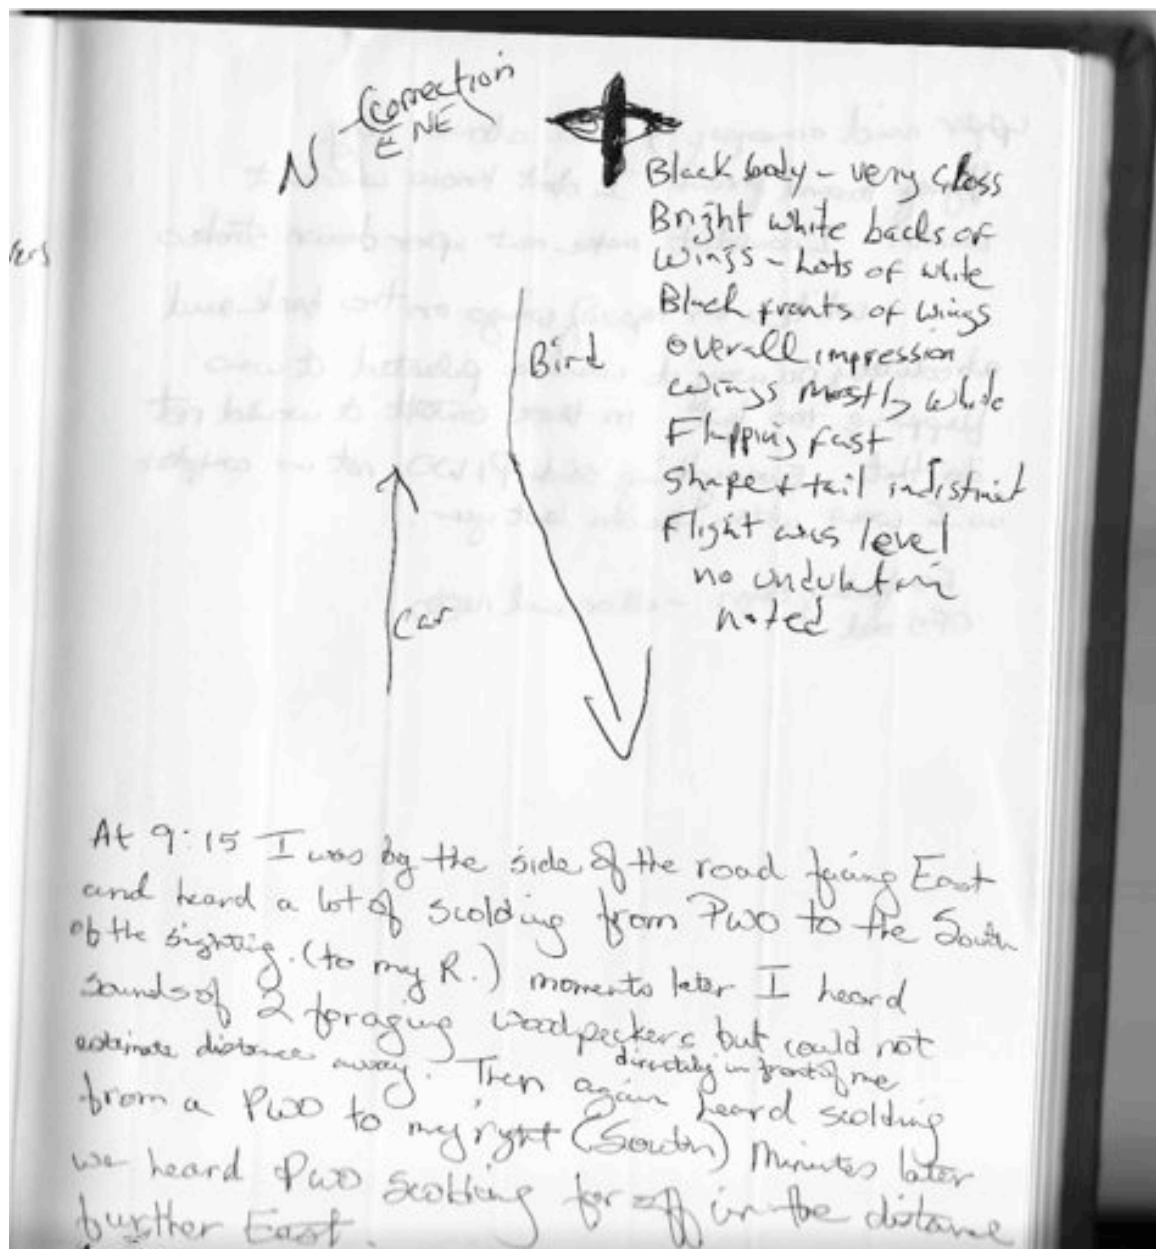 N
Correction
ENE
Black body - very close
Bright white backs of
wings - Lots of white
Black fronts of wings
overall impression
wings mostly white
Flapping fast
Shape + tail indistinct
Flight was level
no undulation
noted
Bird
Car
At 9:15 I was by the side of the road facing East
and heard a lot of scolding from PWO to the South
of the sighting. (to my R.) moments later I heard
sounds of 2 foraging woodpeckers but could not
estimate distance away. Then again directly in front of me heard scolding
from a PWO to my right (South) Minutes later
we heard PWO scolding far off in the distance
further East.